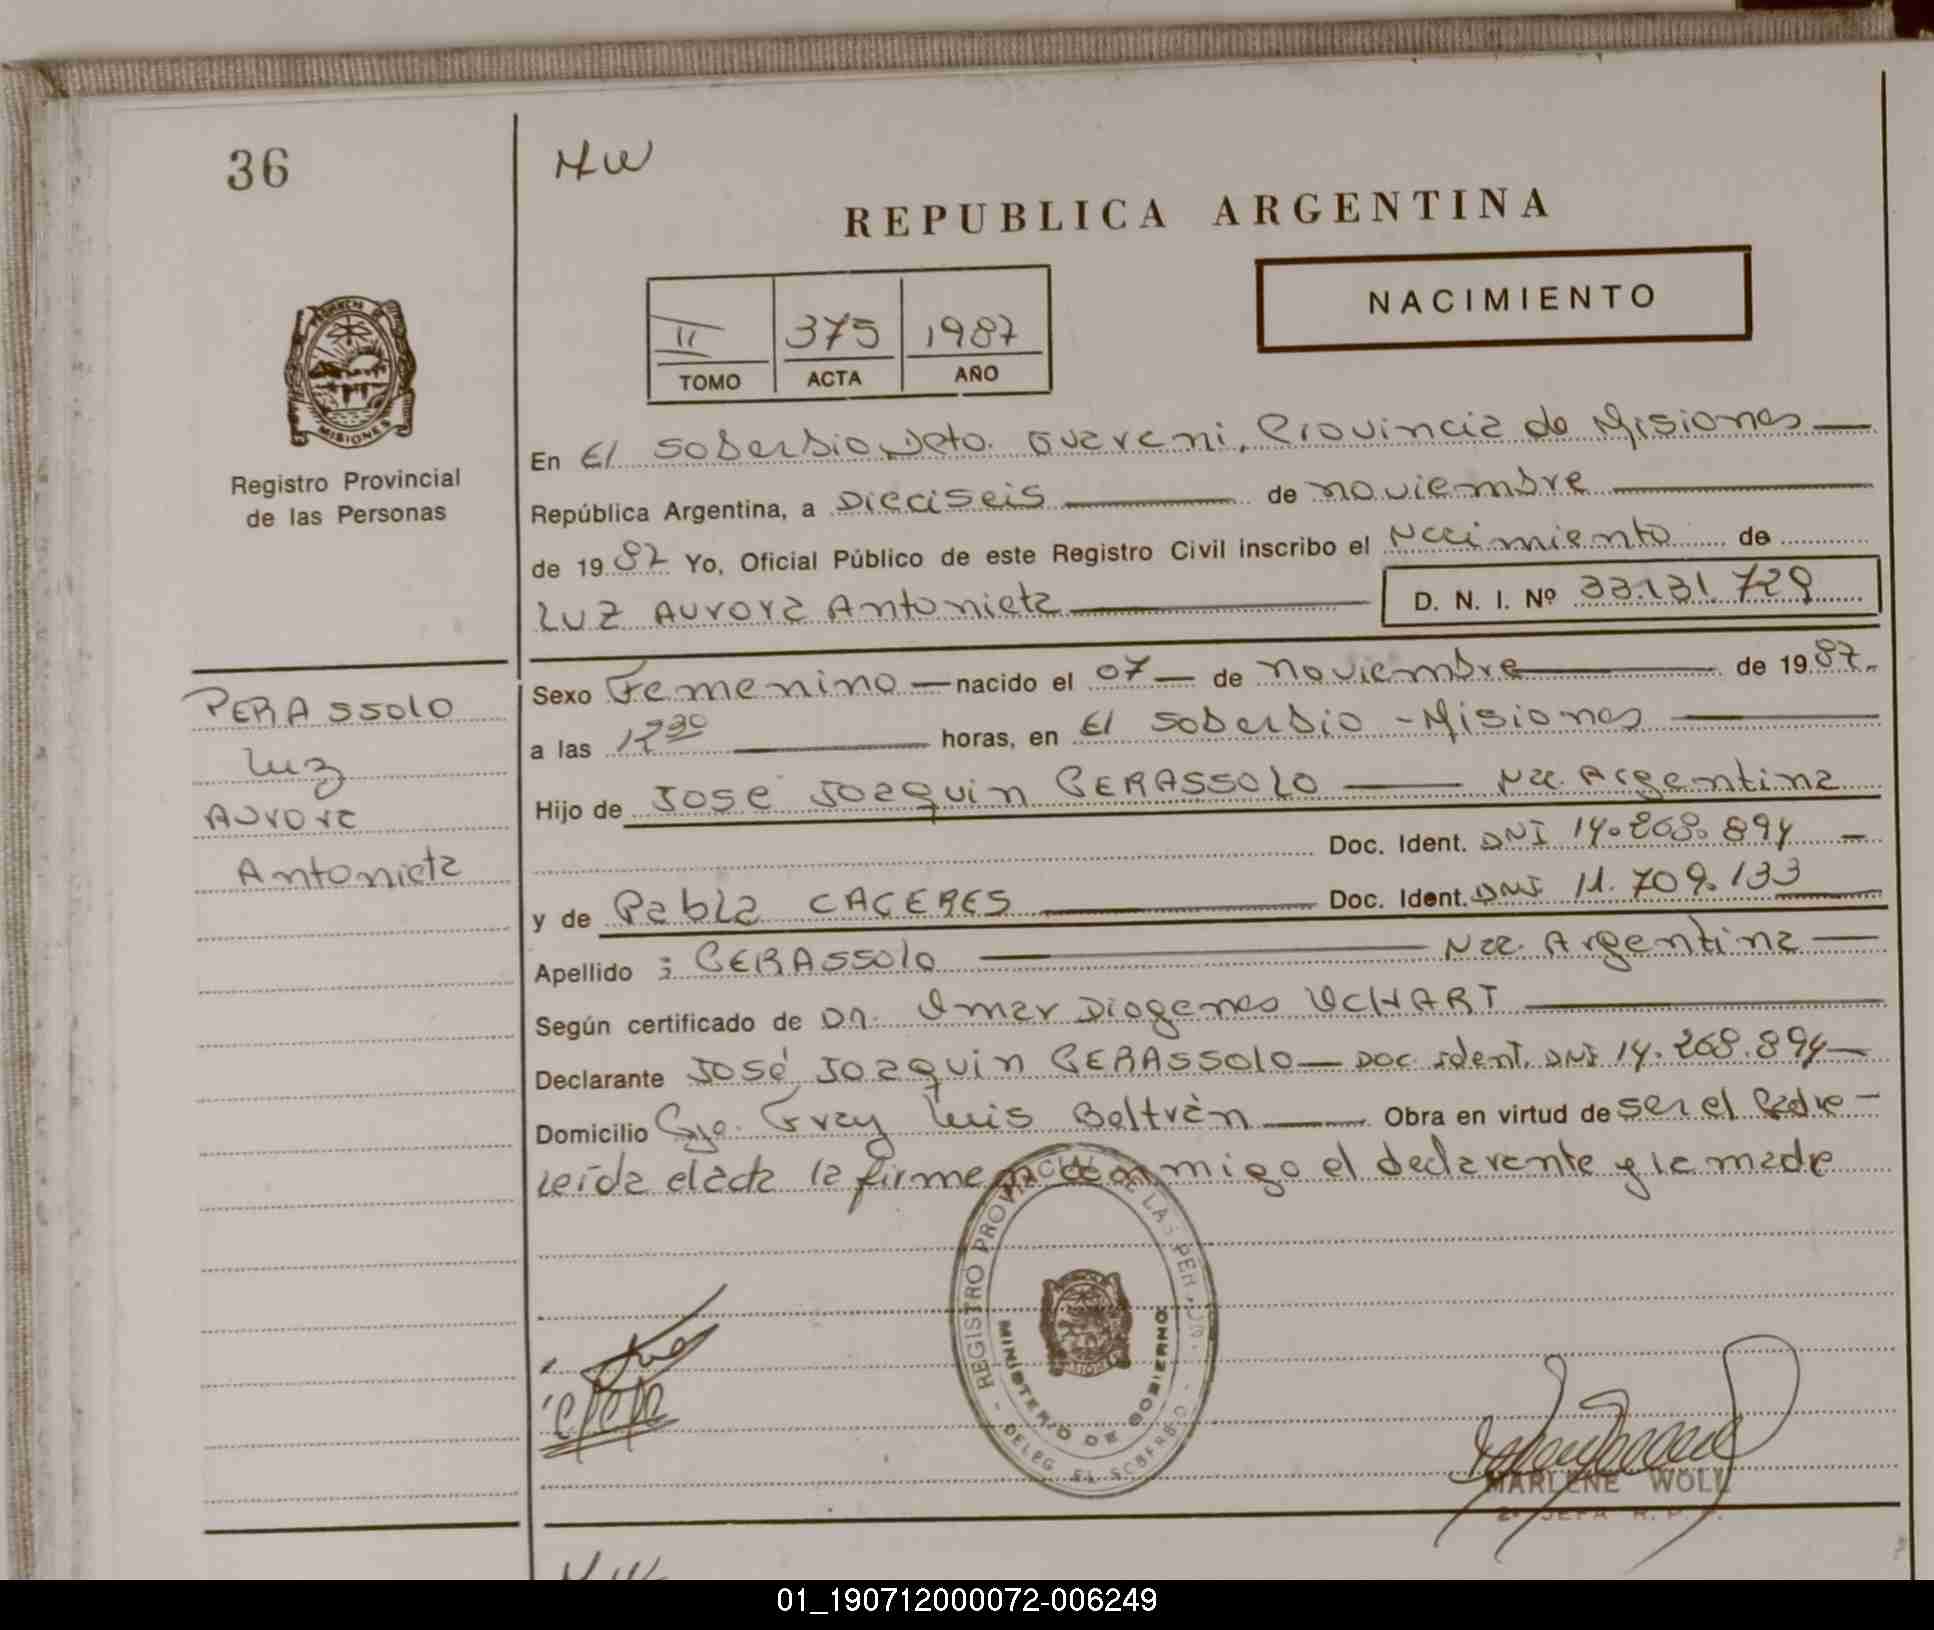 36
MW
REPUBLICA ARGENTINA
II 375 1987
TOMO ACTA AÑO
NACIMIENTO
MISIONES
Registro Provincial
de las Personas
En El Soberbio Dto. Guarani, Provincia de Misiones
República Argentina, a Dieciseis de noviembre
de 1987 Yo, Oficial Público de este Registro Civil inscribo el Nacimiento de
LUZ AURORA Antonieta D. N. I. Nº 33.131.729
PERASSOLO
Luz
Aurora
Antonieta
Sexo Femenino nacido el 07 de noviembre de 1987.
a las horas, en El Soberbio - Misiones
Hijo de José Joaquin PERASSOLO Nac. Argentina
Doc. Ident. DNI 14.268.894
y de Pabla CACERES Doc. Ident. DNI 11.709.133
Apellido : PERASSOLO Nac. Argentina
Según certificado de Dr. Omar Diogenes UCHART
Declarante José Joaquin PERASSOLO Doc. Ident. DNI 14.268.894
Domicilio Pje. Fray Luis Beltrán Obra en virtud de ser el Padre
Leída el acta la firman conmigo el declarante y la madre
REGISTRO PROVINCIAL DE LAS PER
MINISTERIO DE GOBIERNO
DELEG EL SOBERBIO
MARLENE WOLL
2ª JEFA R. P. P.
01_190712000072-006249